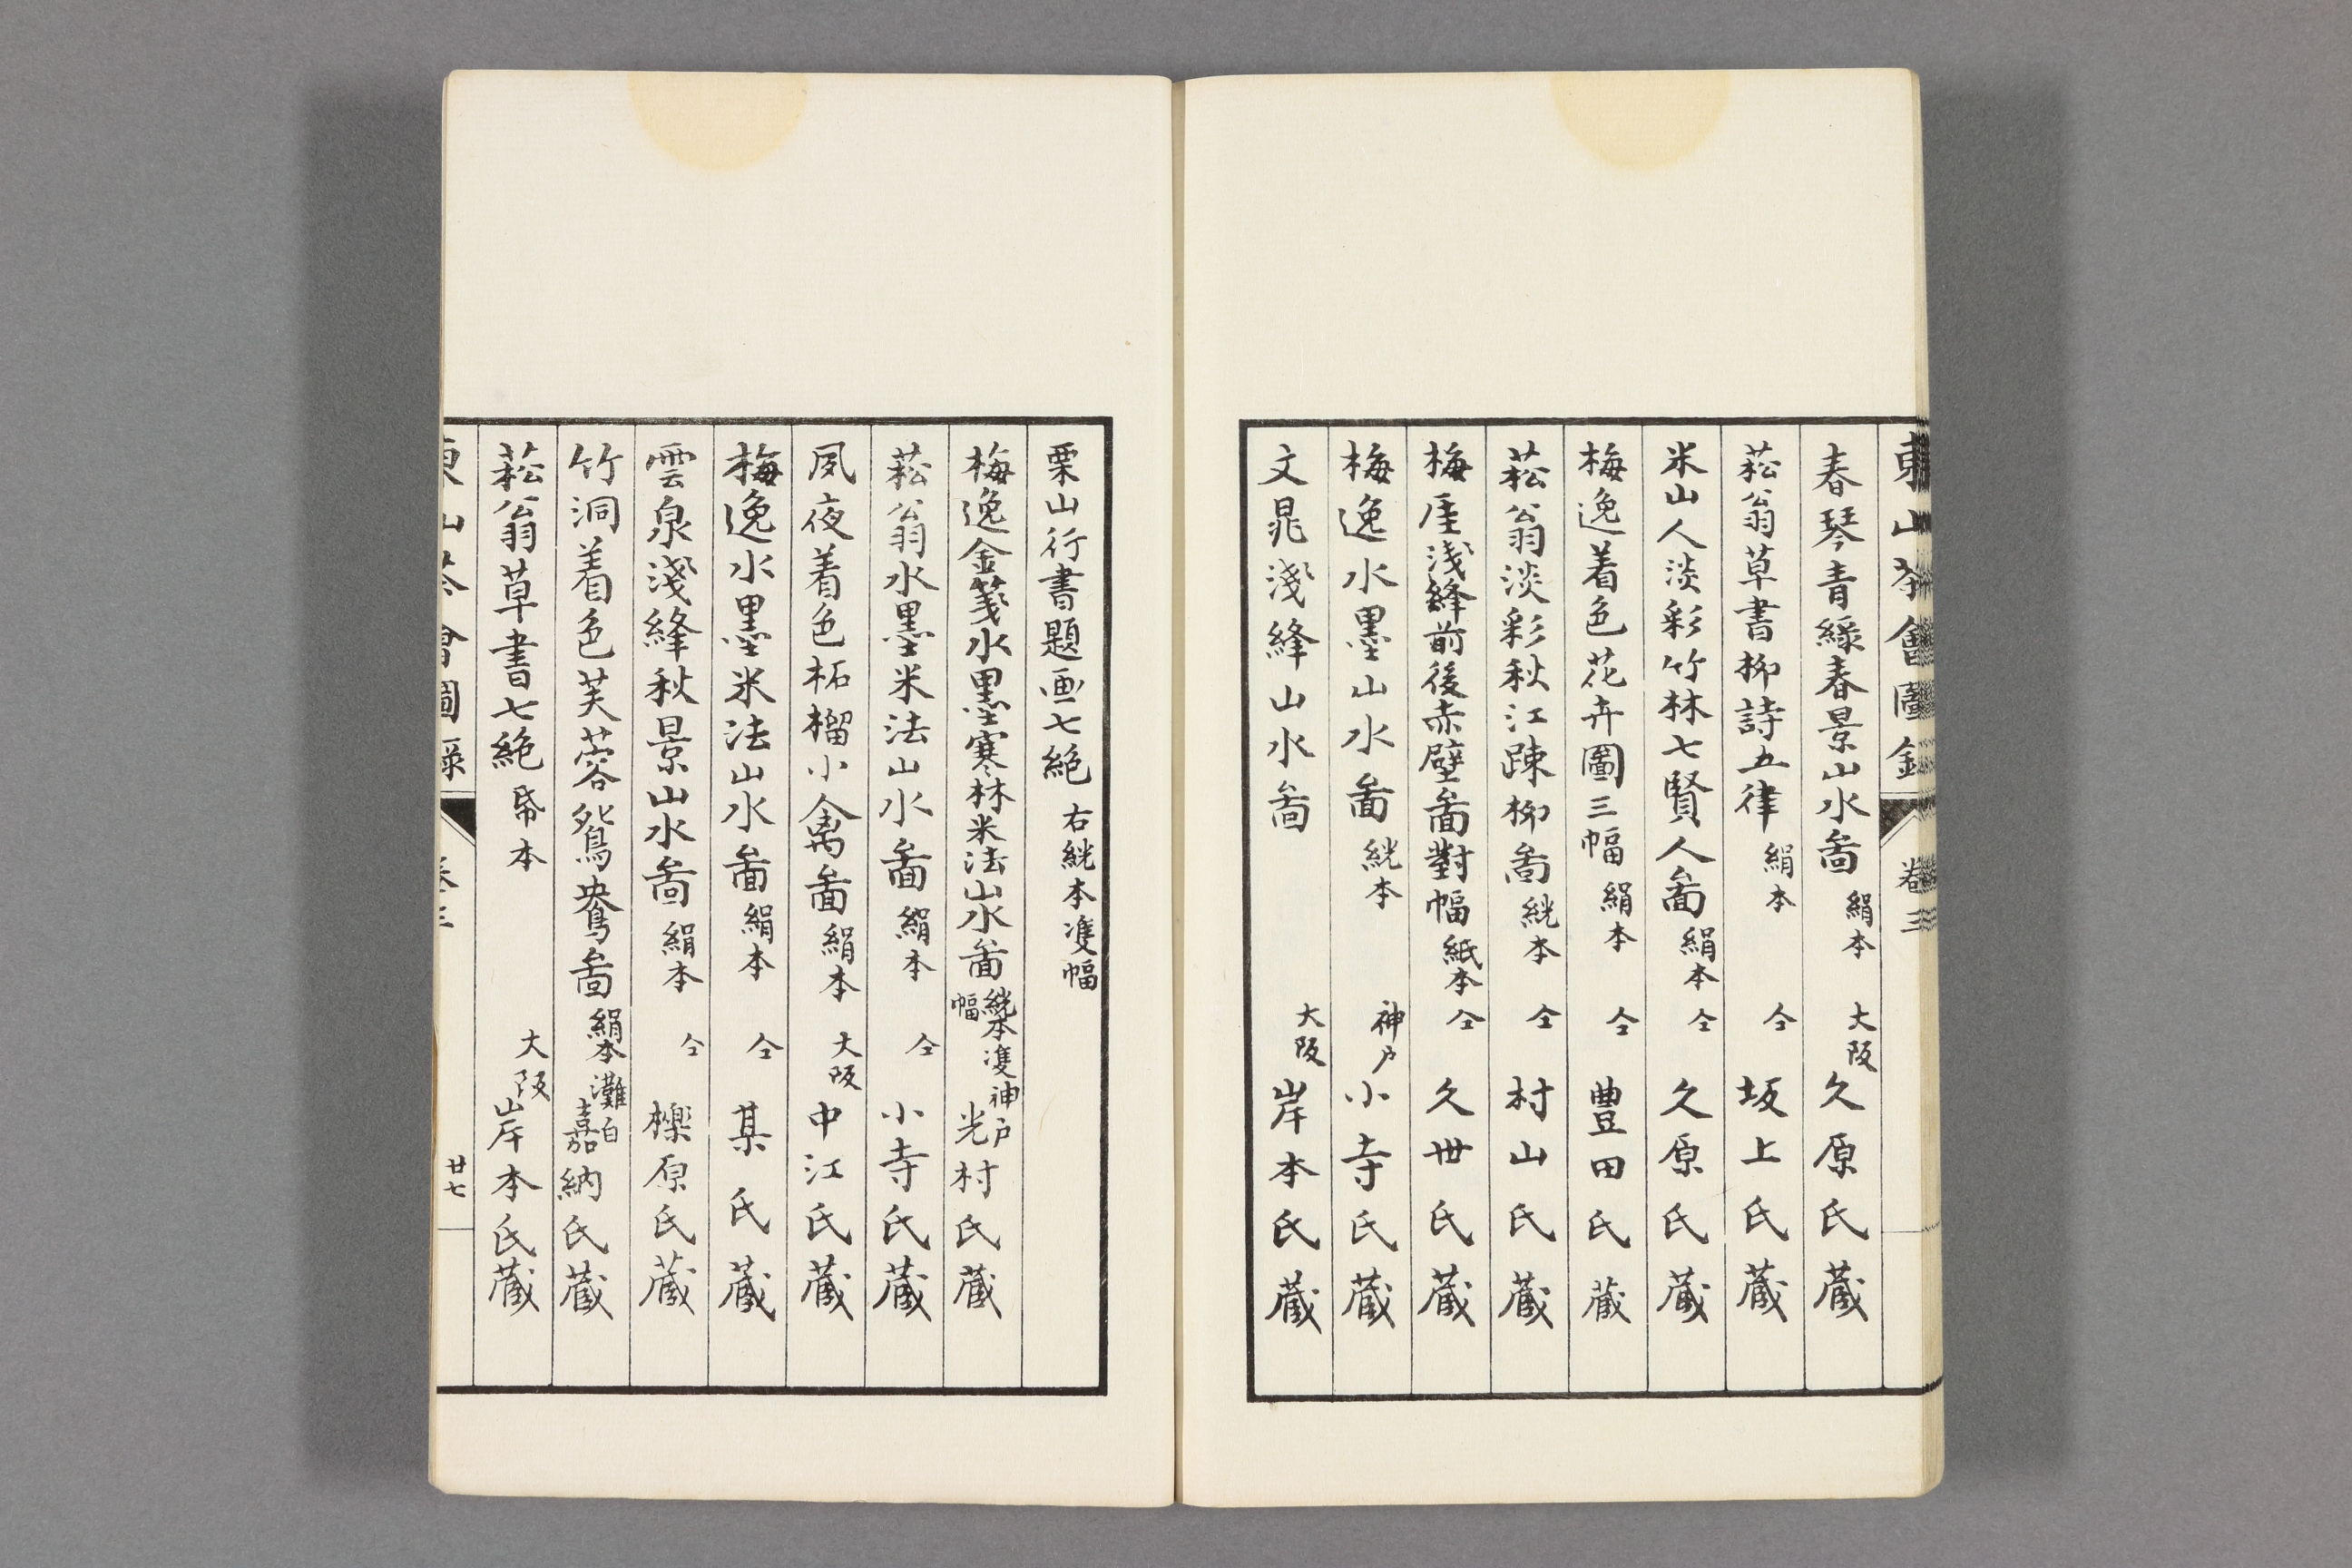 東山茶會圖録 卷三
春琴青緑春景山水啚 絹本 大阪 久原氏蔵
菘翁草書柳詩五律 絹本 仝 坂上氏蔵
米山人淡彩竹林七賢人啚 絹本 仝 久原氏蔵
梅逸着色花卉圖三幅 絹本 仝 豊田氏蔵
菘翁淡彩秋江踈柳啚 絖本 仝 村山氏蔵
梅厓淺絳前後赤壁啚對幅 紙本 仝 久世氏蔵
梅逸水墨山水啚 絖本 神戸 小寺氏蔵
文晁淺絳山水啚 大阪 岸本氏蔵
栗山行書題画七絶 右絖本双幅
梅逸金箋水墨寒林米法山水啚 絖本双幅 神戸 光村氏蔵
菘翁水墨米法山水啚 絹本 仝 小寺氏蔵
夙夜着色柘榴小禽啚 絹本 大阪 中江氏蔵
梅逸水墨米法山水啚 絹本 仝 某氏蔵
雲泉淺絳秋景山水啚 絹本 仝 櫟原氏蔵
竹洞着色芙蓉鴛鴦啚 絹本 灘 白嘉納氏蔵
菘翁草書七絶 帋本 大阪 岸本氏蔵
東山茶會圖録 卷三 廿七